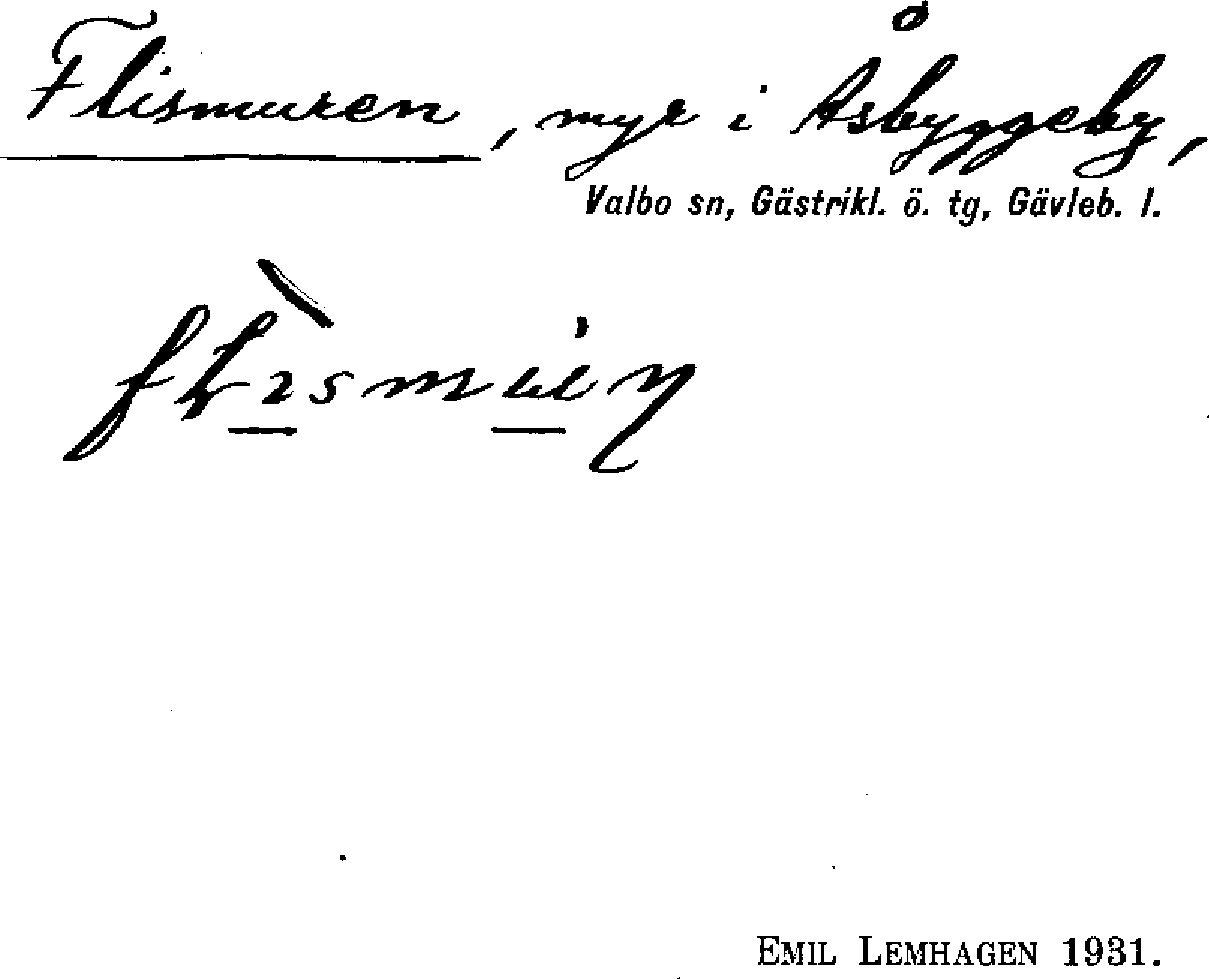 Flismuren, myr i Åsbyggeby,
Valbo sn, Gästrikl. ö. tg, Gävleb. l.
EMIL LEMHAGEN 1931.